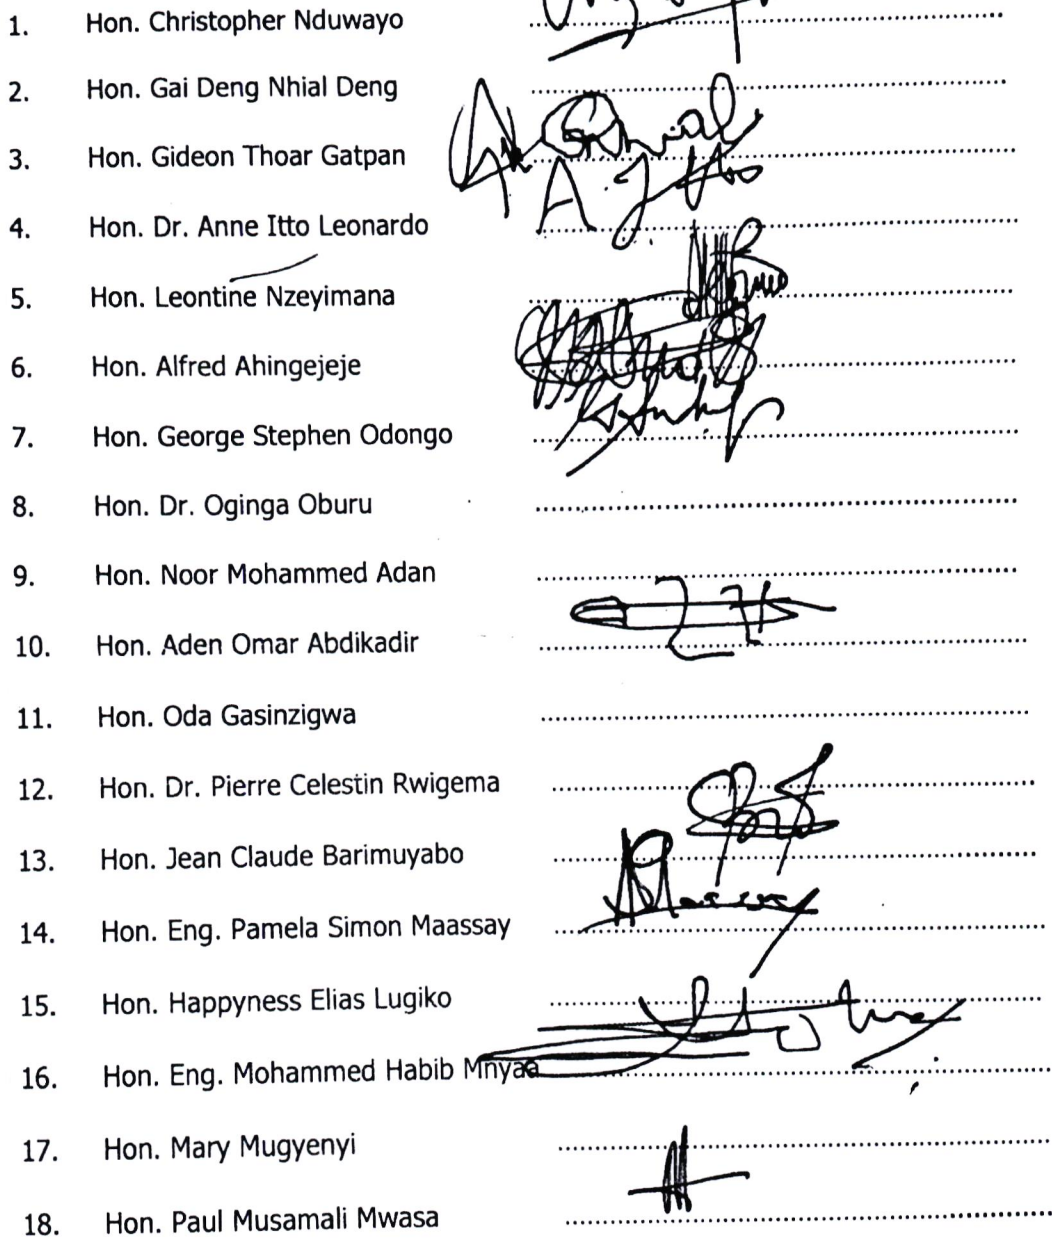 1. Hon. Christopher Nduwayo
2. Hon. Gai Deng Nhial Deng
3. Hon. Gideon Thoar Gatpan
4. Hon. Dr. Anne Itto Leonardo
5. Hon. Leontine Nzeyimana
6. Hon. Alfred Ahingejeje
7. Hon. George Stephen Odongo
8. Hon. Dr. Oginga Oburu
9. Hon. Noor Mohammed Adan
10. Hon. Aden Omar Abdikadir
11. Hon. Oda Gasinzigwa
12. Hon. Dr. Pierre Celestin Rwigema
13. Hon. Jean Claude Barimuyabo
14. Hon. Eng. Pamela Simon Maassay
15. Hon. Happyness Elias Lugiko
16. Hon. Eng. Mohammed Habib Mnyaa
17. Hon. Mary Mugyenyi
18. Hon. Paul Musamali Mwasa